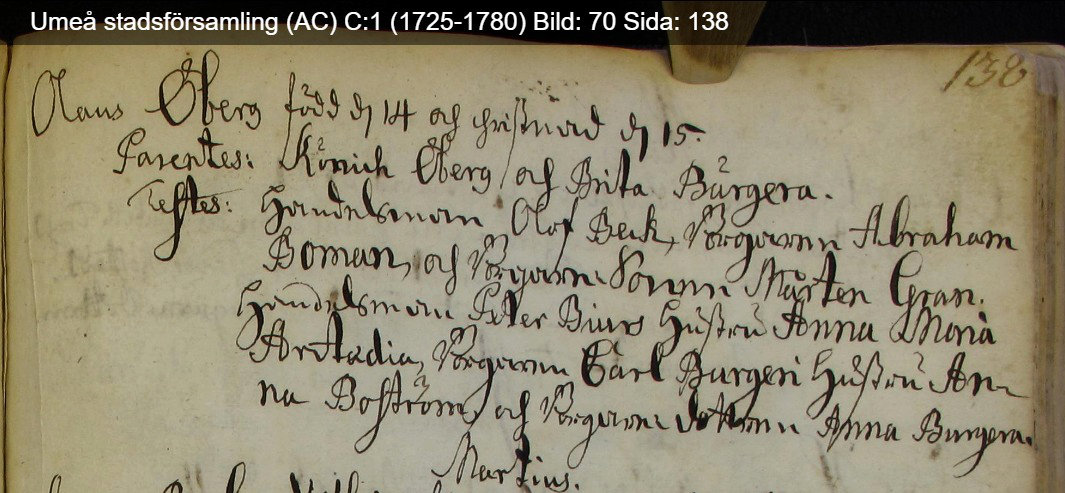 Umeå stadsförsamling (AC) C:1 (1725-1780) Bild: 70 Sida: 138
138
Olaus Öberg född d 14 och christnad d 15.
Parentes: Könich Öberg och Brita Burgera.
Testes: Handelsman Olof Beck, Borgaren Abraham
Boman, och Borgare Sonen Mårten Gran.
Handelsman Peter Biurs Hustru Anna Maria
Arctædia, Borgaren Carl Burgeri Hustru An-
na Boström, och Borgare dottren Anna Burgera.
Martius.